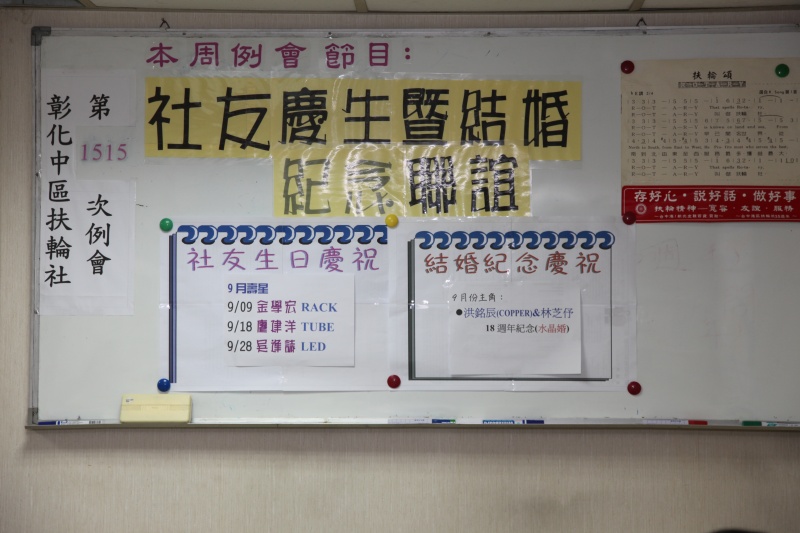 本周例會節目:
社友慶生暨結婚
紀念聯誼
彰化中區扶輪社
第
1515
次例會
社友生日慶祝
9月壽星
9/09 金學宏 RACK
9/18 盧建洋 TUBE
9/28 LED
結婚紀念慶祝
9月份主角:
●洪銘辰(COPPER)&林芝伃
18週年紀念(水晶婚)
扶輪頌
R-O-T-A-R-Y
存好心・說好話・做好事
扶輪精神—寬容、友誼、服務